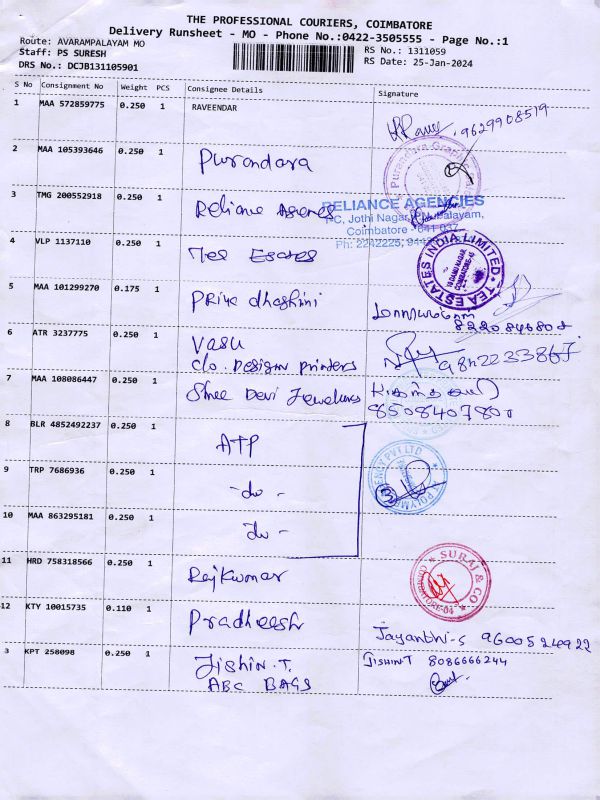 THE PROFESSIONAL COURIERS, COIMBATORE
Delivery Runsheet - MO - Phone No.:0422-3505555 - Page No.:1
Route: AVARAMPALAYAM MO
Staff: PS SURESH
DRS No.: DCJB131105901
RS No.: 1311059
RS Date: 25-Jan-2024
S No Consignment No Weight PCS Consignee Details Signature
1 MAA 572859775 0.250 1 RAVEENDAR
9629908519
2 MAA 105393646 0.250 1 Purandara
Purandara Graphics
3 TMG 200552918 0.250 1 Reliance Agencies
RELIANCE AGENCIES
Jothi Nagar, P.N. Palayam,
Coimbatore - 641 037
Ph: 2242225,
4 VLP 1137110 0.250 1 Tea Estates
TEA ESTATES INDIA LIMITED
5 MAA 101299270 0.175 1 Priya dharshini
6 ATR 3237775 0.250 1 Vasu
C/o. Design Printers
9842233867
7 MAA 108086447 0.250 1 Shree Devi Jewellers
8508407800
8 BLR 4852492237 0.250 1 ATP
9 TRP 7686936 0.250 1 -do-
3
10 MAA 863295181 0.250 1 -do-
11 HRD 758318566 0.250 1 Rajkumar
SURAJ & CO
COIMBATORE-04
12 KTY 10015735 0.110 1 Pradheesh
Jayanthi-S 9600524922
3 KPT 258098 0.250 1 Jishin.T.
ABC BAGS
JISHIN T 8086666244